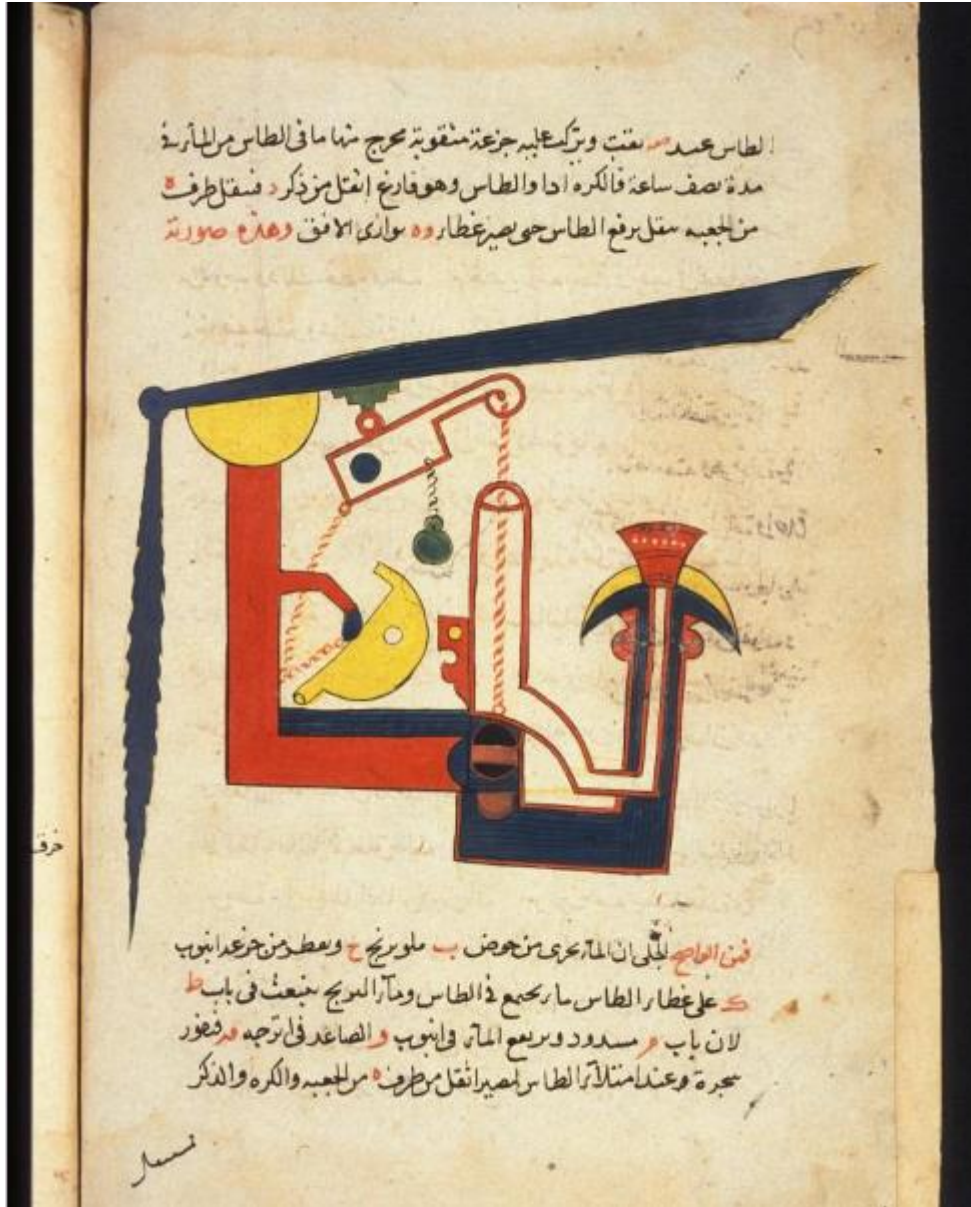 الطاس عند بعنت ويركب عليه جزعة مثقوبة يخرج منها ما فى الطاس من المآء فى
مدة نصف ساعة فالكره اذا والطاس وهو فارغ اثقل من ذكر د فيثقل طرف ه
من الجعبه بثقل يرفع الطاس حتى يصير غطاؤه يوازى الافق وهذه صورته
فمن الواضح الجلى ان المآء يجرى من حوض ب ملو بربخ ح ويقطر من جزعة انبوب
ك على غطاء الطاس ما يجتمع فى الطاس ومآء البربخ ينبعث فى باب ط
لان باب م مسدود ويرتفع المآء فى انبوب و الصاعد فى اترجه فيفور
بحجرة وعند امتلآء الطاس ليصير اثقل من طرف ه من الجعبه والكره والذكر